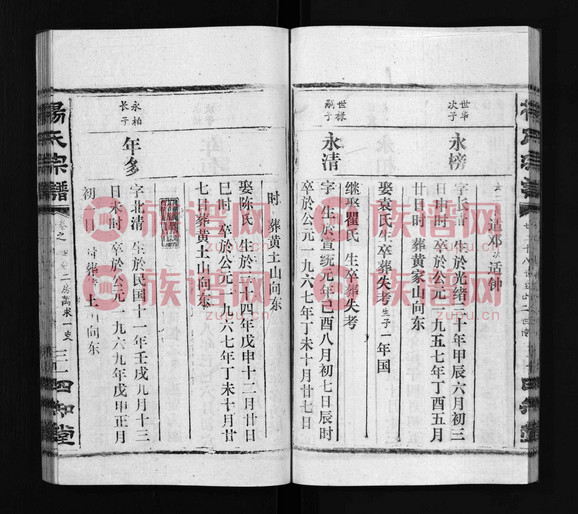 适邓 适钟
世华
次子
永榜
字长 生於光绪三十年甲辰六月初三
日申时 卒於公元一九五七年丁酉五月
日时 葬黄家山向东
娶袁氏 生卒葬失考 生子一 年国
继娶瞿氏 生卒葬失考
世禄
嗣子
永清
字 生於宣统元年己酉八月初七日辰时
卒於公元一九六七年丁未十月廿七日
时 葬黄土山向东
娶陈氏 生於 二十四年戊申十二月廿日
巳时 卒於公元一九六七年丁未十月廿
七日葬黄土山向东
永柏
长子
年多
字北清 生於民国十一年壬戌九月十三
日未时 卒於公元一九六九年戊申正月
初 日 时葬 土 向东
杨氏宗谱
卷之
二房万求一支
三
四知堂
族谱网
zupu.cn